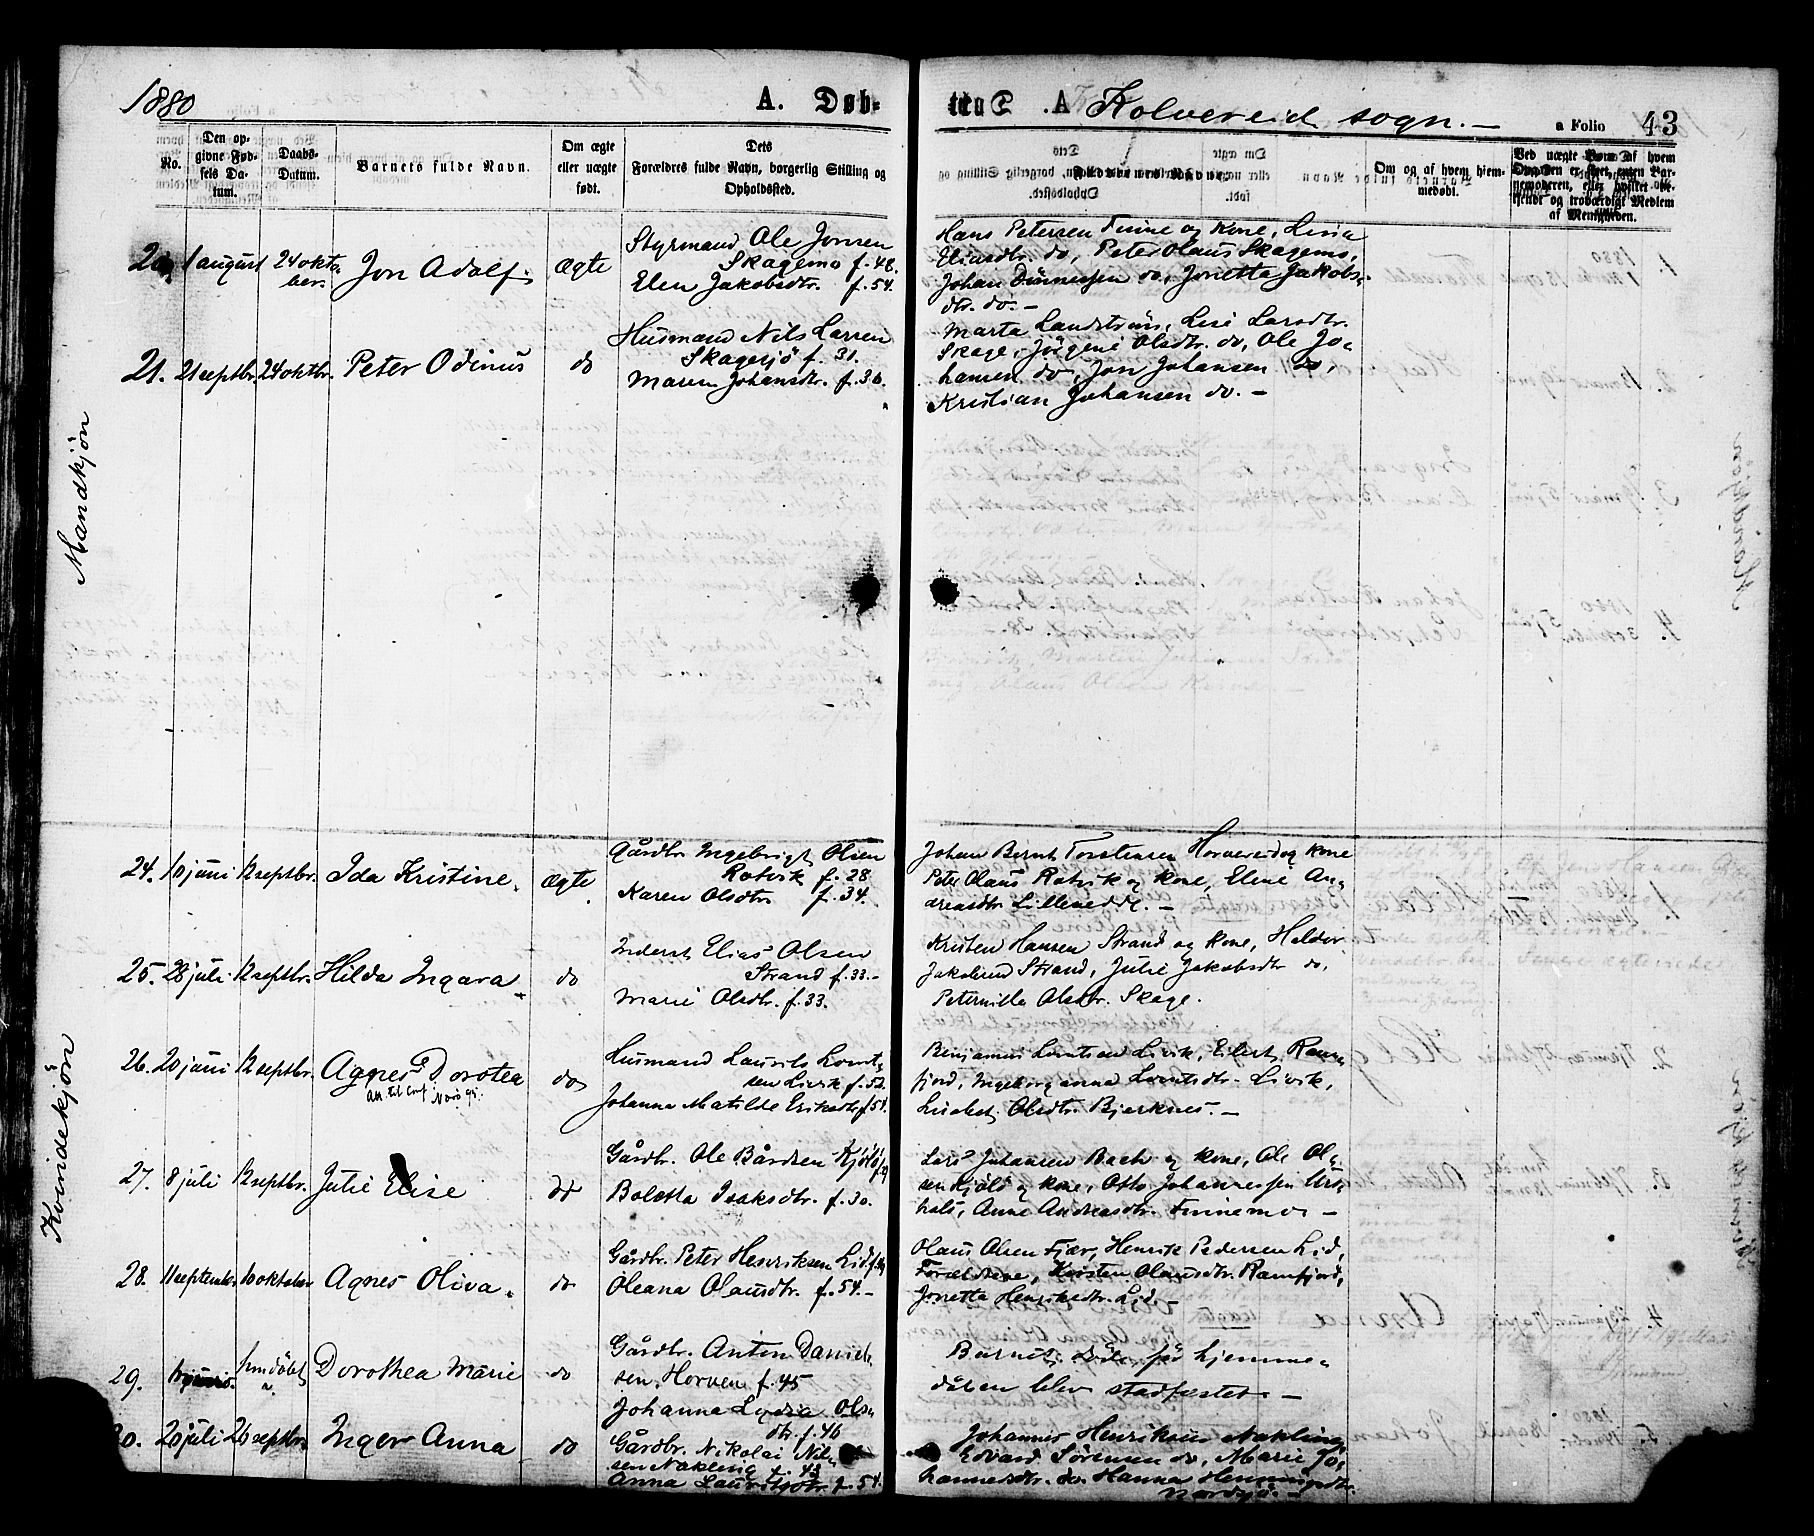 1880
A. Døb-
A. Kolvereid sogn. —
a Folio 43
No.
Den op-
givne Fød-
sels Da-
tum.
Daabs-
Datum.
Barnets fulde Navn.
Om ægte
eller uægte
født.
Dets
Forældres fulde Navn, borgerlig Stilling og
Opholdssted.
Om og af hvem hjem-
medøbt.
Mandkjøn
1 august 24 okto
ber
Jon Adolf.
ægte
Styrmand Ole Jonsen
Skagemo f. 48.
Elen Jakobsdtr. f. 54.
Hans Petersen Finne og kone, Lisia
Eliasdtr. do, Peter Olaus Skagemo,
Johan Dinnesen do, Jonetta Jakobs-
dtr. do. —
21. 21 septbr. 24 oktbr. Peter Odinus
do
Husmand Nils Larsen
Skagesjö f. 31.
Maren Johansdtr. f. 36.
Marta Landstrøm, Lise Larsdtr.
Skage, Jörgine Olsdtr. do, Ole Jo-
hansen do, Jon Johansen do,
Kristian Johansen do. —
Kvindekjøn
24. 10 juni 12 septbr. Ida Kristine.
ægte
Gårdbr. Ingebrigt Olsen
Rotvik f. 28
Karen Olsdtr f. 34.
Johan Bernt Torstensen Horvereid og kone
Peter Olaus Rotvik og kone, Eline An-
dreasdtr Lillenedde. —
25. 28 juli 12 septbr. Hilda Ingara
do
Inderst Elias Olsen
Strand f. 33. -
Marie Olsdtr. f. 33.
Kristen Hansen Strand og kone, Haldor
Jakobsen Strand, Julie Jakobsdtr do,
Peternilla Olsdtr. Skage.
26. 20 juni 12 septbr. Agnes Dorotea
do
Husmand Laurits Lornt-
sen Livik f. 52.
Johanna Matilde Eriksdtr f. 54.
Benjamin Lorntsen Livik, Eilert Ram-
fjord, Ingeborganna Lorntsdtr. Livik,
Lisabet Olsdtr. Bjerknes. —
27. 8 juli 12 septbr. Julie Elise
do
Gårdbr. Ole Bårdsen Kjölö
Boletta Isaksdtr. f. 30.
Lars Johansen Bach og kone, Ole Ol-
sen Kjölö og kone, Otto Johannessen
Anne Andreasdtr. Finnemo —
28. 11 septembr 10 oktober Agnes Oliva.
do
Gårdbr. Peter Henriksen Lid
Oleana Olausdtr. f. 54. —
Olaus Olsen Fjær, Henrik Pedersen Lid,
Forældrene, Kirsten Olausdtr. Ramfjord,
Jonetta Henriksdtr. Lid. —
29. hjemdöbt Dorothea Marie
do
Gårdbr. Anton Daniel-
sen Horven f. 45
Johanna Lydia Ols-
dtr. f. 46
Barnet döde før hjemme-
dåben blev stadfæstet. —
30. 20 juli 26 septbr Inger Anna
do
Gårdbr. Nikolai Nil-
sen Nakling f. 43
Anna Lauritsdtr. f. 54.
Johannes Henriksen Nakling
Edvard Sörensen do, Marie Jo-
hannesdtr. do. Hanna Henningsdtr.